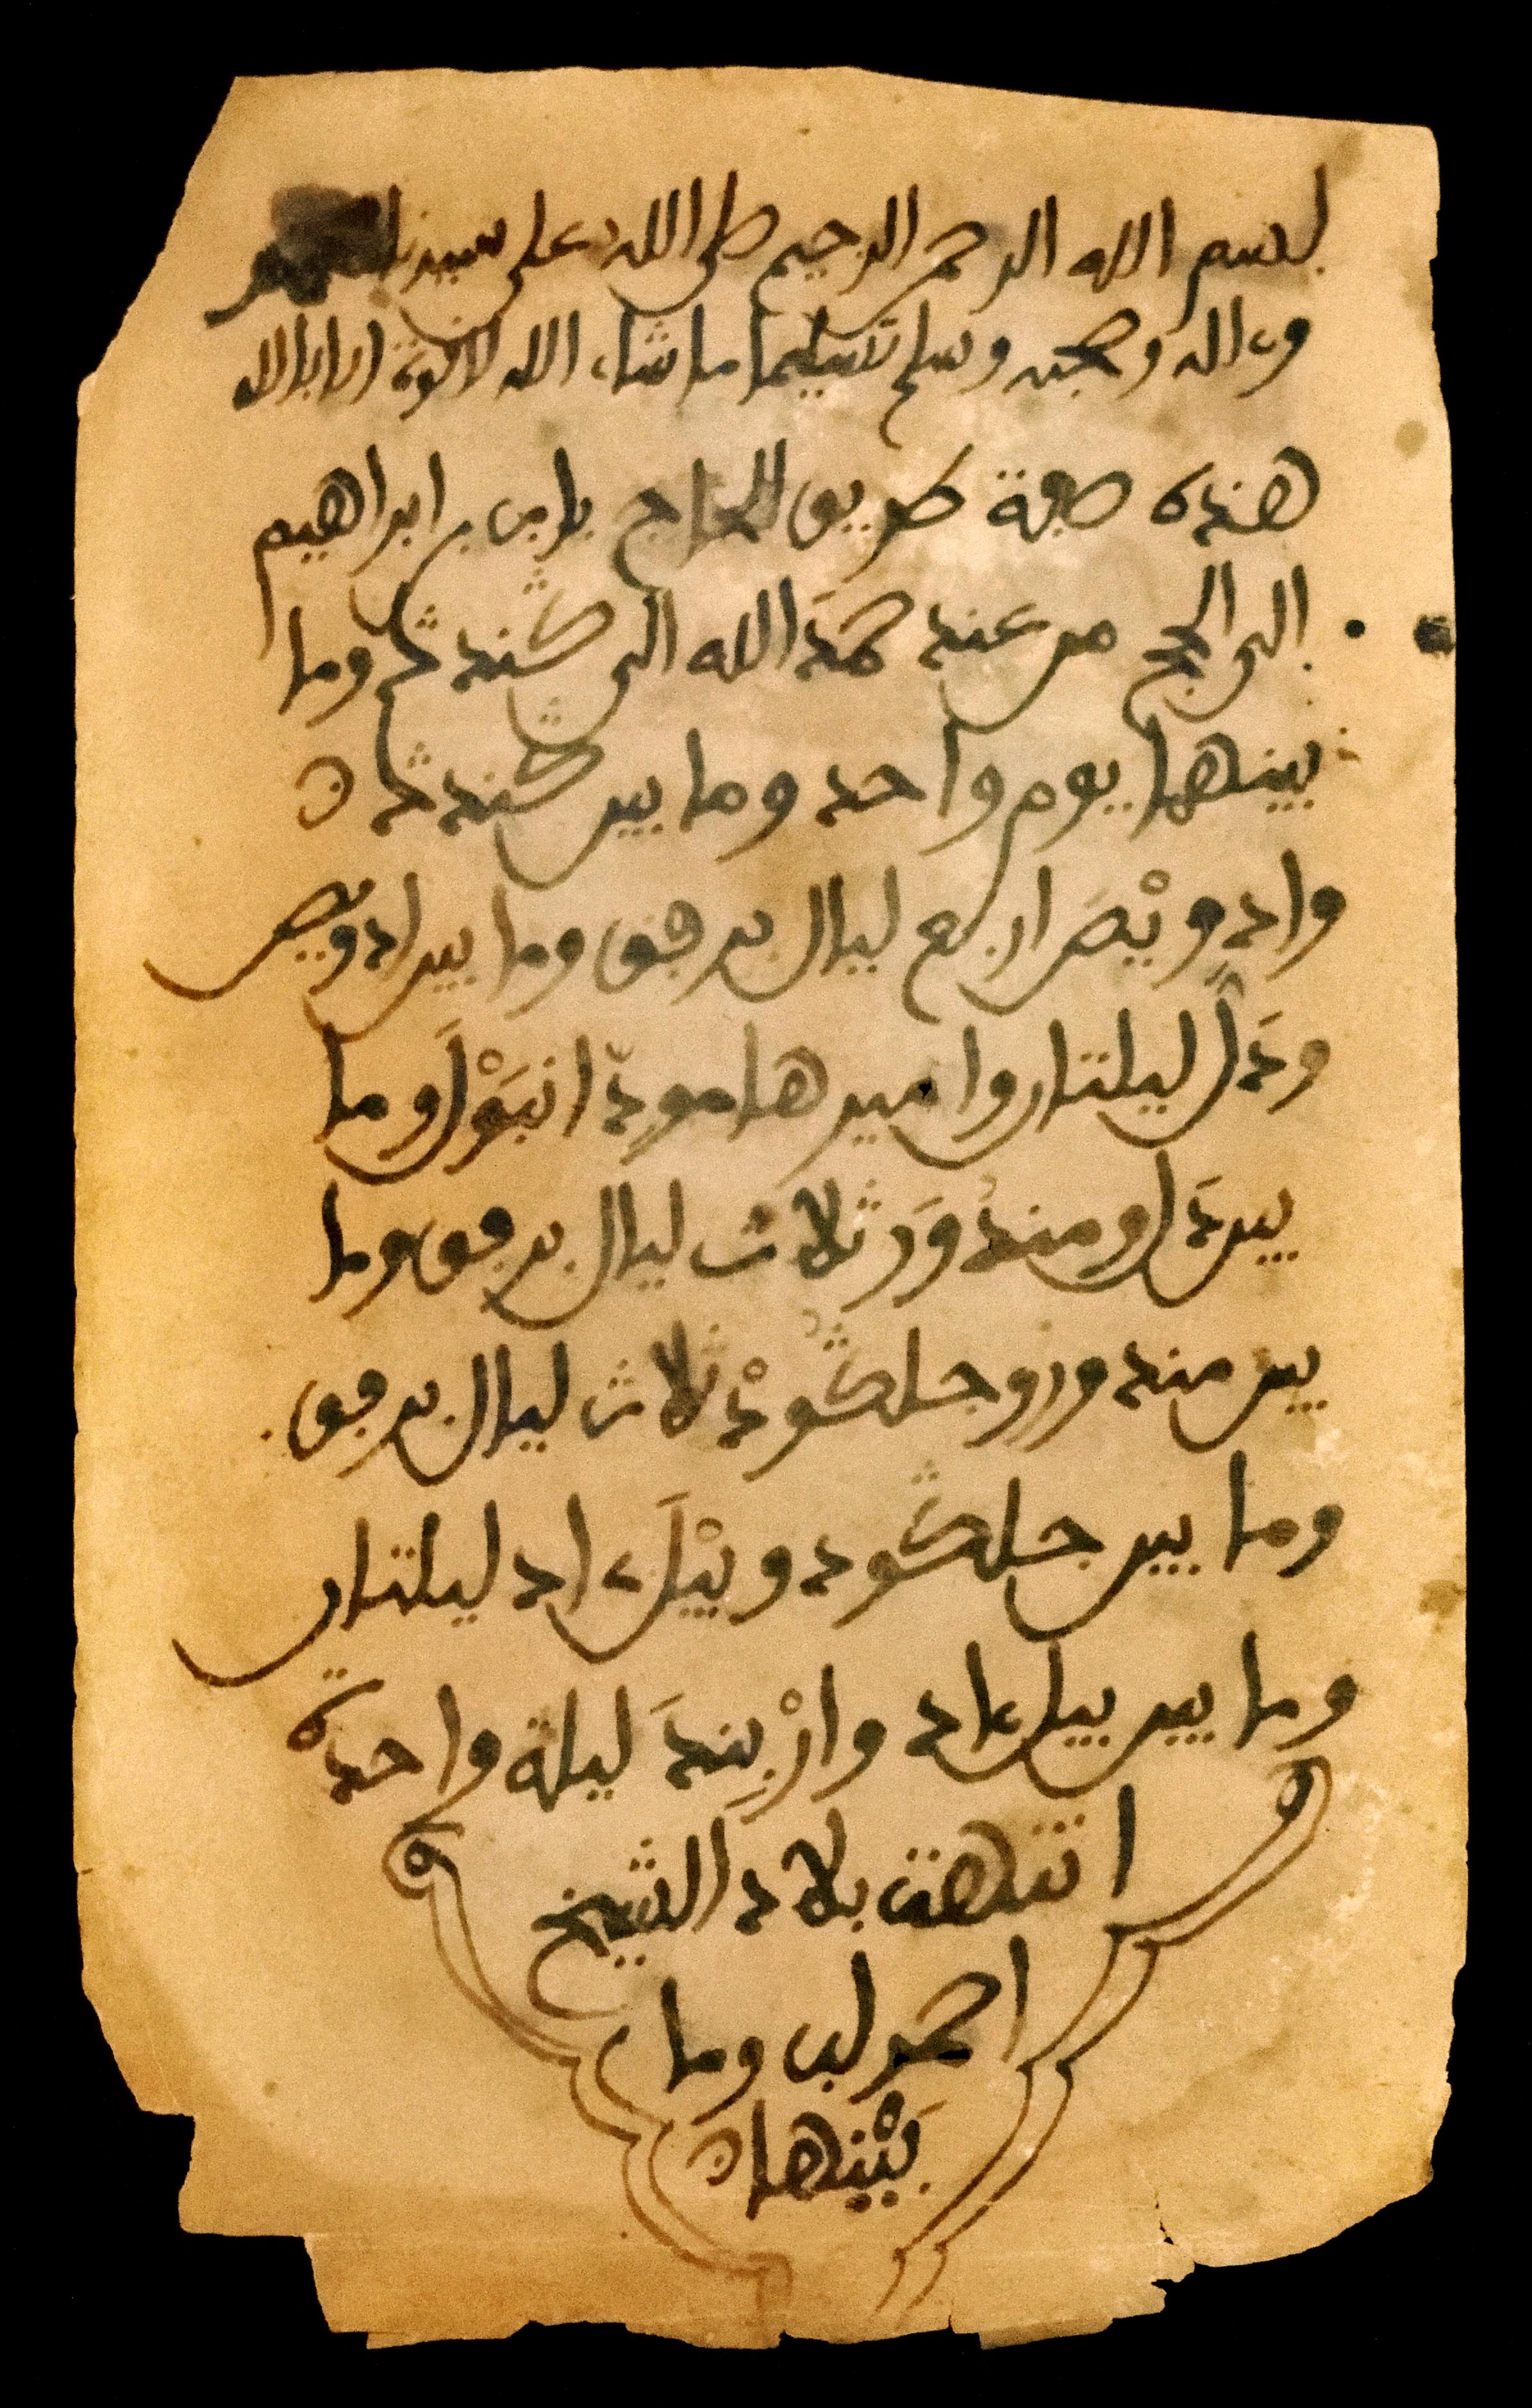 بسم الله الرحمن الرحيم صلى الله على سيدنا محمد
وءاله وصحبه وسلم تسليما ما شاء الله لا قوة الا بالله
هذه صفة طريق الحاج بن ابراهيم
الى الحج من عند حمد الله الى كنده وما
بينهما يوم واحد وما بين كنده
وادويص اربع ليال برفق وما بين ادويص
ودل ليلتان واميرها مود انبول وما
بين دل ومند ور ثلاث ليال برفق وما
بين مند ورو جلكود ثلاث ليال برفق
وما بين جلكود وبيل ءاد ليلتان
وما بين بيل ءاد واربند ليلة واحدة
انتهت بلاد الشيخ
احمد لب وما
بينهما